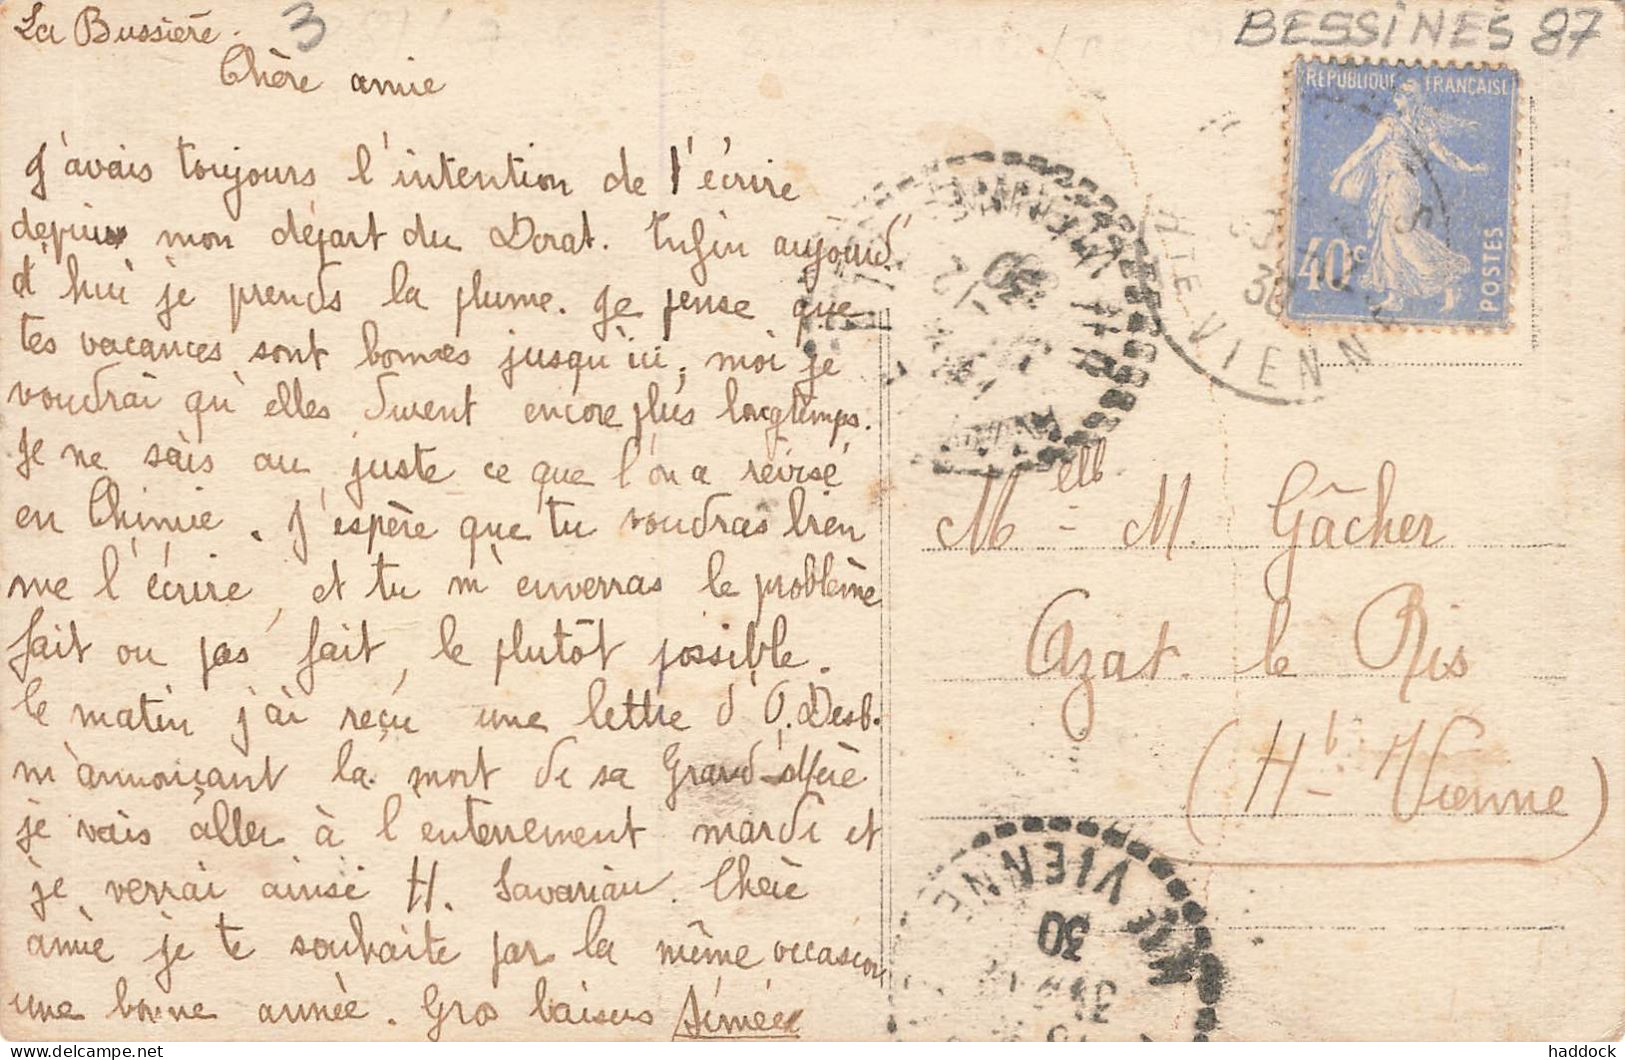 La Bussière.
3
BESSINES 87
Chère amie
J'avais toujours l'intention de t'écrire
depuis mon départ du Dorat. Enfin aujourd'
d'hui je prends la plume. Je pense que
tes vacances sont bonnes jusqu'ici, moi je
voudrai qu'elles durent encore plus longtemps.
Je ne sais au juste ce que l'on a révisé
en Chimie. J'espère que tu voudras bien
me l'écrire, et tu m'enverras le problème
fait ou pas fait, le plutôt possible.
Ce matin j'ai reçu une lettre d'O. Desb.
m'annonçant la mort de sa Grand-Mère
je vais aller à l'enterrement mardi et
je verrai ainsi H. Savariau. Chère
amie je te souhaite par la même occasion
une bonne année. Gros baisers Aimée
REPUBLIQUE FRANÇAISE
40c
POSTES
HTE VIENN
30
Melle M. Gâcher
Azat le Ris
(Hte Vienne)
HTE VIENNE
30
31
haddock